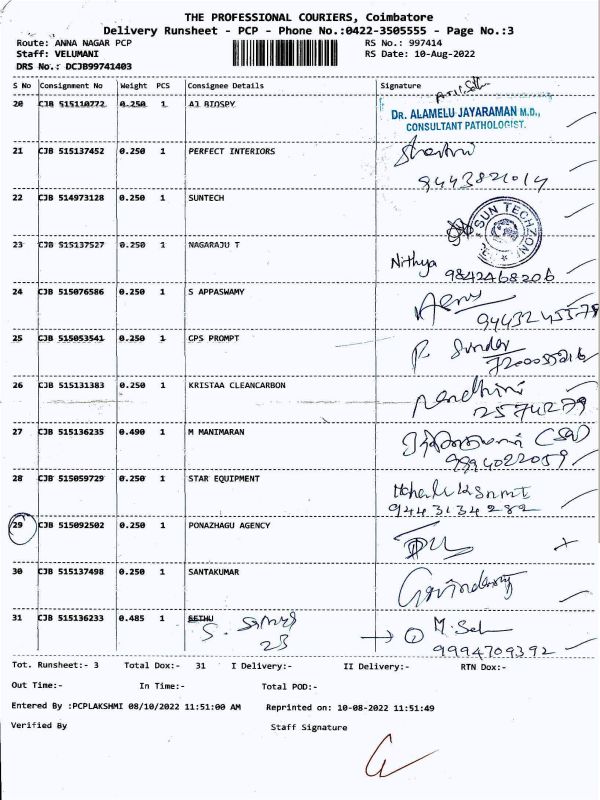 THE PROFESSIONAL COURIERS, Coimbatore
Delivery Runsheet - PCP - Phone No.:0422-3505555 - Page No.:3
Route: ANNA NAGAR PCP RS No.: 997414
Staff: VELUMANI RS Date: 10-Aug-2022
DRS No.: DCJB99741403
S No Consignment No Weight PCS Consignee Details Signature
20 CJB 515110772 0.250 1 A1 BIOSPY
DR. ALAMELU JAYARAMAN M.D.,
CONSULTANT PATHOLOGIST.
21 CJB 515137452 0.250 1 PERFECT INTERIORS
9443821014
22 CJB 514973128 0.250 1 SUNTECH
SUN TECHZONE
23 CJB 515137527 0.250 1 NAGARAJU T
Nithya 9842468206
24 CJB 515076586 0.250 1 S APPASWAMY
25 CJB 515053541 0.250 1 CPS PROMPT
26 CJB 515131383 0.250 1 KRISTAA CLEANCARBON
Nandhini
2574279
27 CJB 515136235 0.490 1 M MANIMARAN
9894022059
28 CJB 515059729 0.250 1 STAR EQUIPMENT
9443134282
29 CJB 515092502 0.250 1 PONAZHAGU AGENCY
30 CJB 515137498 0.250 1 SANTAKUMAR
31 CJB 515136233 0.485 1 SETHU
23
1 M. Sel
9994709392
Tot. Runsheet:- 3 Total Dox:- 31 I Delivery:- II Delivery:- RTN Dox:-
Out Time:- In Time:- Total POD:-
Entered By :PCPLAKSHMI 08/10/2022 11:51:00 AM Reprinted on: 10-08-2022 11:51:49
Verified By Staff Signature